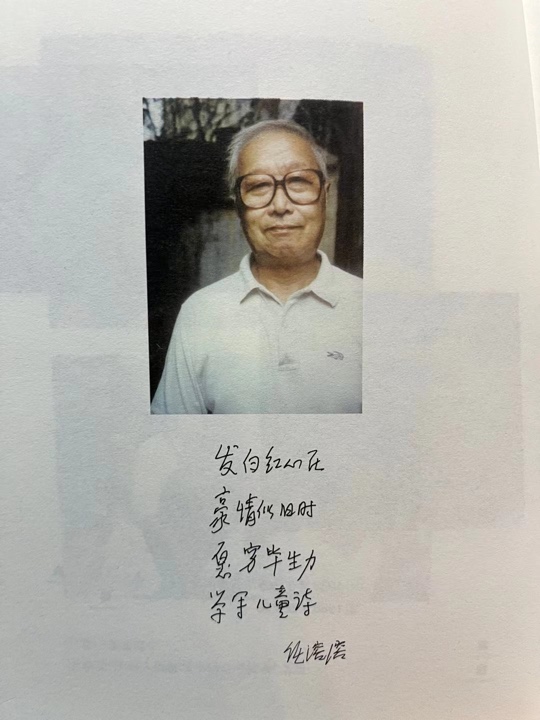 发白红心在
豪情似旧时
愿穷毕生力
学写儿童诗
任溶溶